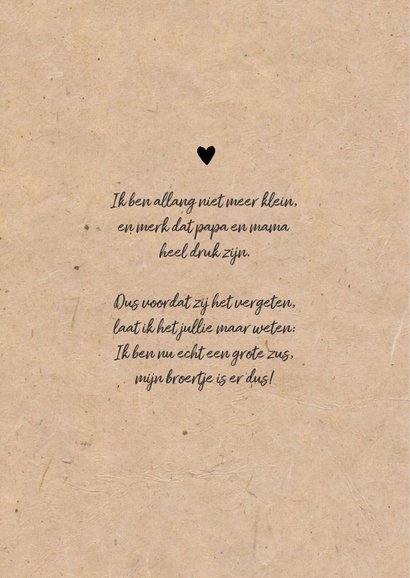 Ik ben allang niet meer klein,
en merk dat papa en mama
heel druk zijn.
Dus voordat zij het vergeten,
laat ik het jullie maar weten:
Ik ben nu echt een grote zus,
mijn broertje is er dus!